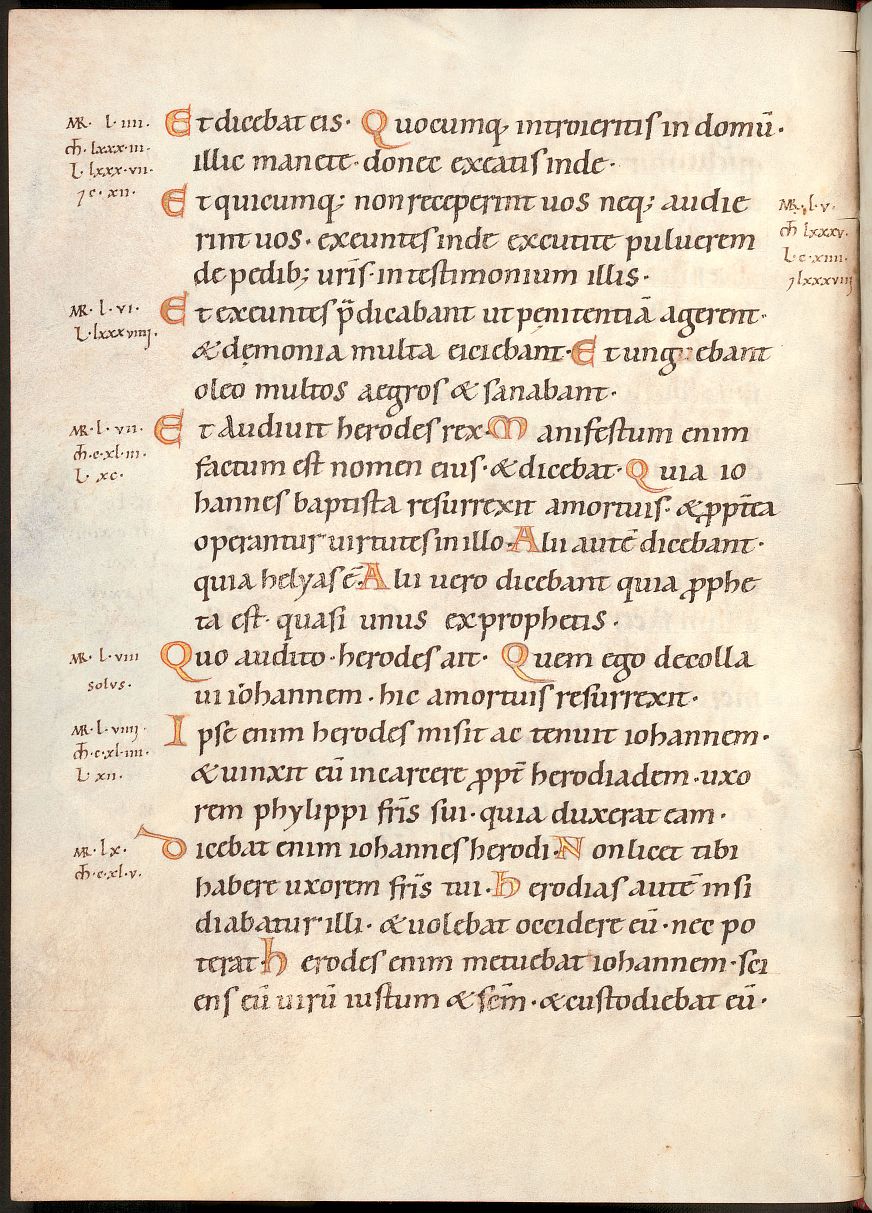 MR · l · iiii ·
Et dicebat eis · Quocumq; introieritis in domū ·
Mh̄ · lxxx · iii ·
illic manete · donec exeatis inde ·
L · lxxx · vii ·
Io · xii ·
Et quicumq; non receperint uos neq; audie
MR · l · v ·
rint uos · exeuntes inde excutite puluerem
Mh̄ lxxxv ·
de pedib; uris̄ · in testimonium illis ·
L · c · xiiii ·
MR · l · vi ·
Et exeuntes p̄dicabant ut pęnitentiā agerent ·
L · lxxxviiii ·
& dęmonia multa eiciebant · Et unguebant
oleo multos aegros & sanabant ·
MR · l · vii ·
Et audiuit herodes rex · Manifestum enim
Mh̄ · c · xl · iii ·
factum est nomen eius · & dicebat · Quia io
L · xc ·
hannes baptista resurrexit amortuis · & ꝓpt̄ea
operantur uirtutes in illo · Alii autē dicebant ·
quia helyas ē · Alii uero dicebant quia ꝓphe
ta est · quasi unus ex prophetis ·
MR · l · viii
solus ·
Quo audito · herodes ait · Quem ego decolla
ui iohannem · hic amortuis resurrexit ·
MR · l · viiii ·
Ipse enim herodes misit ac tenuit iohannem ·
Mh̄ · c · xl · iiii ·
& uinxit eū in carcere ꝓpt̄ herodiadem · uxo
L · xii ·
rem phylippi fr̄is sui · quia duxerat eam ·
MR · lx ·
Dicebat enim iohannes herodi · Non licet tibi
Mh̄ · c · xl · v ·
habere uxorem fr̄is tui · Herodias autē insi
diabatur illi · & uolebat occidere eū · nec po
terat · Herodes enim metuebat iohannem · sci
ens eū uirū iustum & sc̄m · & custodiebat eū ·